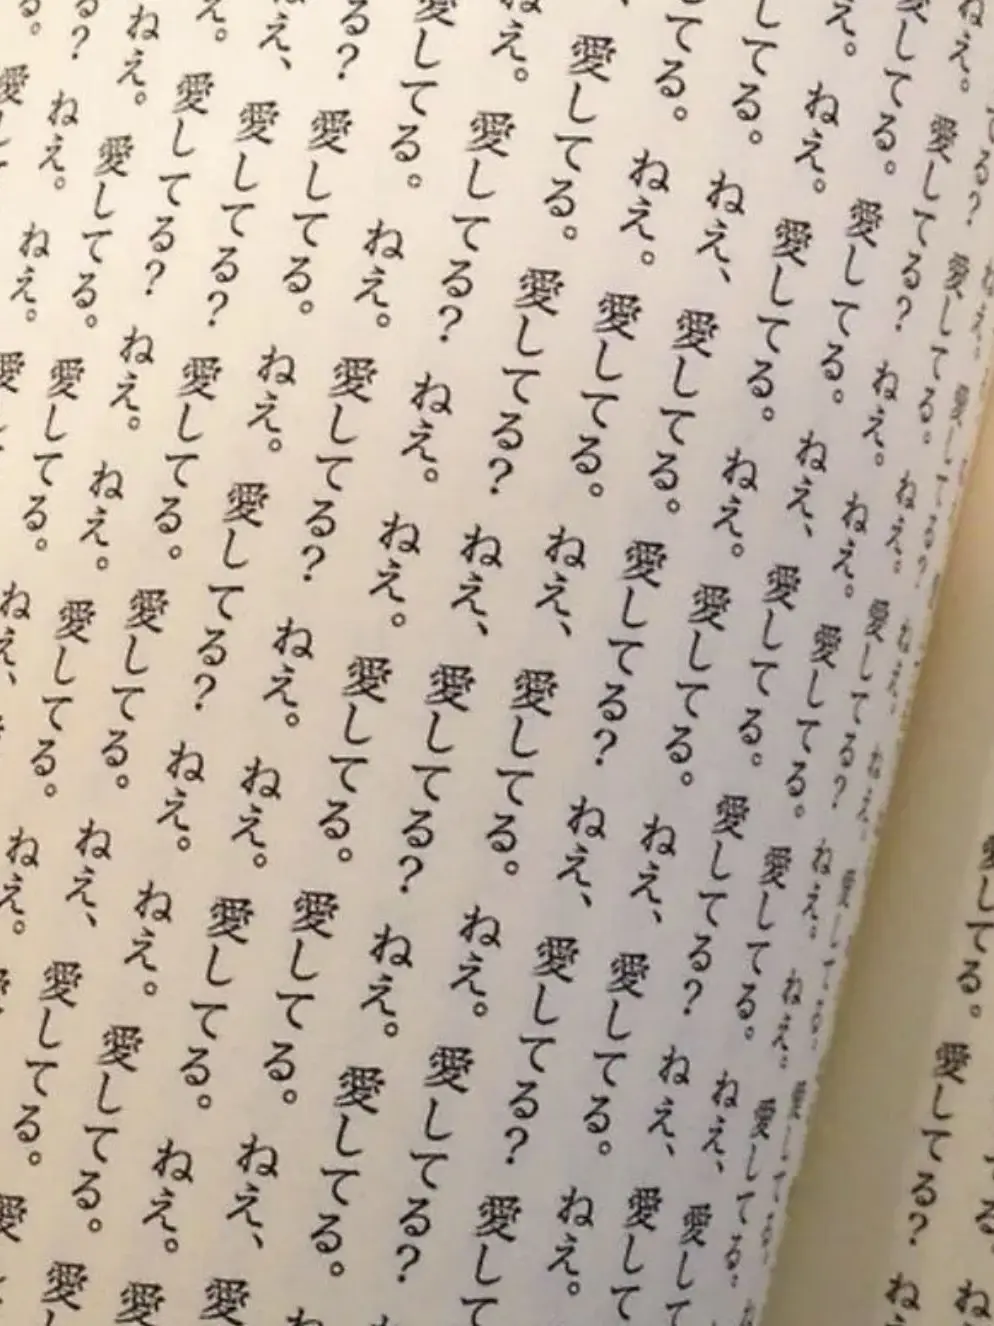 愛してる。愛してる?ねえ
ねえ。愛してる?ねえ、ねえ。愛してる。愛してる。
てる?愛してる。ねえ。愛してる?ねえ。ねえ。愛してる。
ねえ。愛してる?ねえ。ねえ。愛してる。愛してる。ねえ、愛して
愛してる。愛してる。ねえ、愛してる。愛してる?ねえ、愛して
え。ねえ。愛してる。ねえ。愛してる。ねえ、愛してる。ねえ。
してる。ねえ、愛してる。愛してる?ねえ、愛してる?愛して
してる。ねえ。愛してる。ねえ、愛してる。ねえ。愛してる?ね
愛してる。愛してる?ねえ、愛してる?ねえ。愛してる。ね
ねえ。愛してる?ねえ。ねえ。愛してる。愛してる。ねえ、愛
愛してる。ねえ。愛してる?ねえ。ねえ。愛してる。ねえ。愛
る?愛してる。ねえ。愛してる?ねえ。ねえ。愛してる。愛
ねえ、愛してる?愛してる。愛してる。ねえ、愛してる。愛
え。愛してる?ねえ。ねえ。愛してる。ねえ。
ねえ。愛してる。愛してる。ねえ、
る?ねえ。ねえ。愛
る。愛し